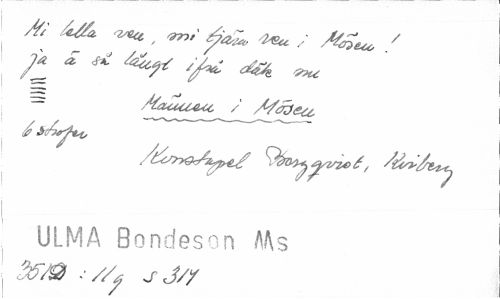 Mi lella ven, mi tjära ven i Mösen!
ja ä så långt ifrå däk nu
Männen i Mösen
6 strofer
Konstapel Bergqvist, Kviberg
ULMA Bondeson Ms
351 :11g s 314